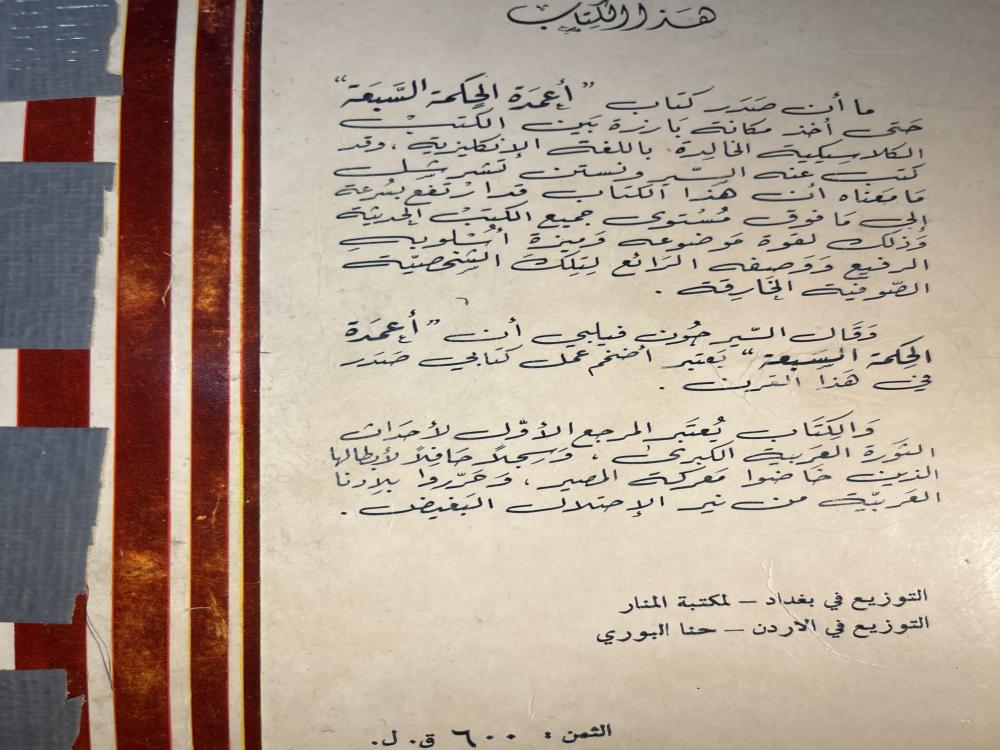 هَذا الكِتَاب
ما أن صَدَر كتاب "أعمدَة الحِكمة السَّبعَة"
حَتى أخذ مكانة بَارزة بَين الكتب
الكلاسيكية الخالدة باللغة الإنكليزية ، وقد
كتب عنه السّير ونستن تشرشل
مَا معَناه أن هذا الكتاب قد ارتفع بسُرعة
إلى مَا فوق مُسْتوى جميع الكتبْ الحديثة
وَذلك لقوة مَوضوعه وَميزة أسُلوبه
الرفيع وَوَصفه الرَائع لتِلكَ الشخصيّة
الصّوفية الخَارِقة .
وَقَال السّير جُون فيلبي أن "أعمدَة
الحِكمة السَبعة" يَعتبر أضخم عمل كتابي صَدَر
في هَذا القرن .
وَالكِتَاب يُعتَبر المرجع الأوّل لأحداث
الثورة العَربية الكبرى ، وَسِجلاً حَافِلاً لأبطالها
الذين خَاضوا مَعركة المصير ، وَحَرّروا بلادنا
العَربيّة من نير الإحتلال البَغيض .
التوزيع في بغداد – لمكتبة المنار
التوزيع في الاردن – حنا البوري
الثمن : ٦٠٠ ق. ل.